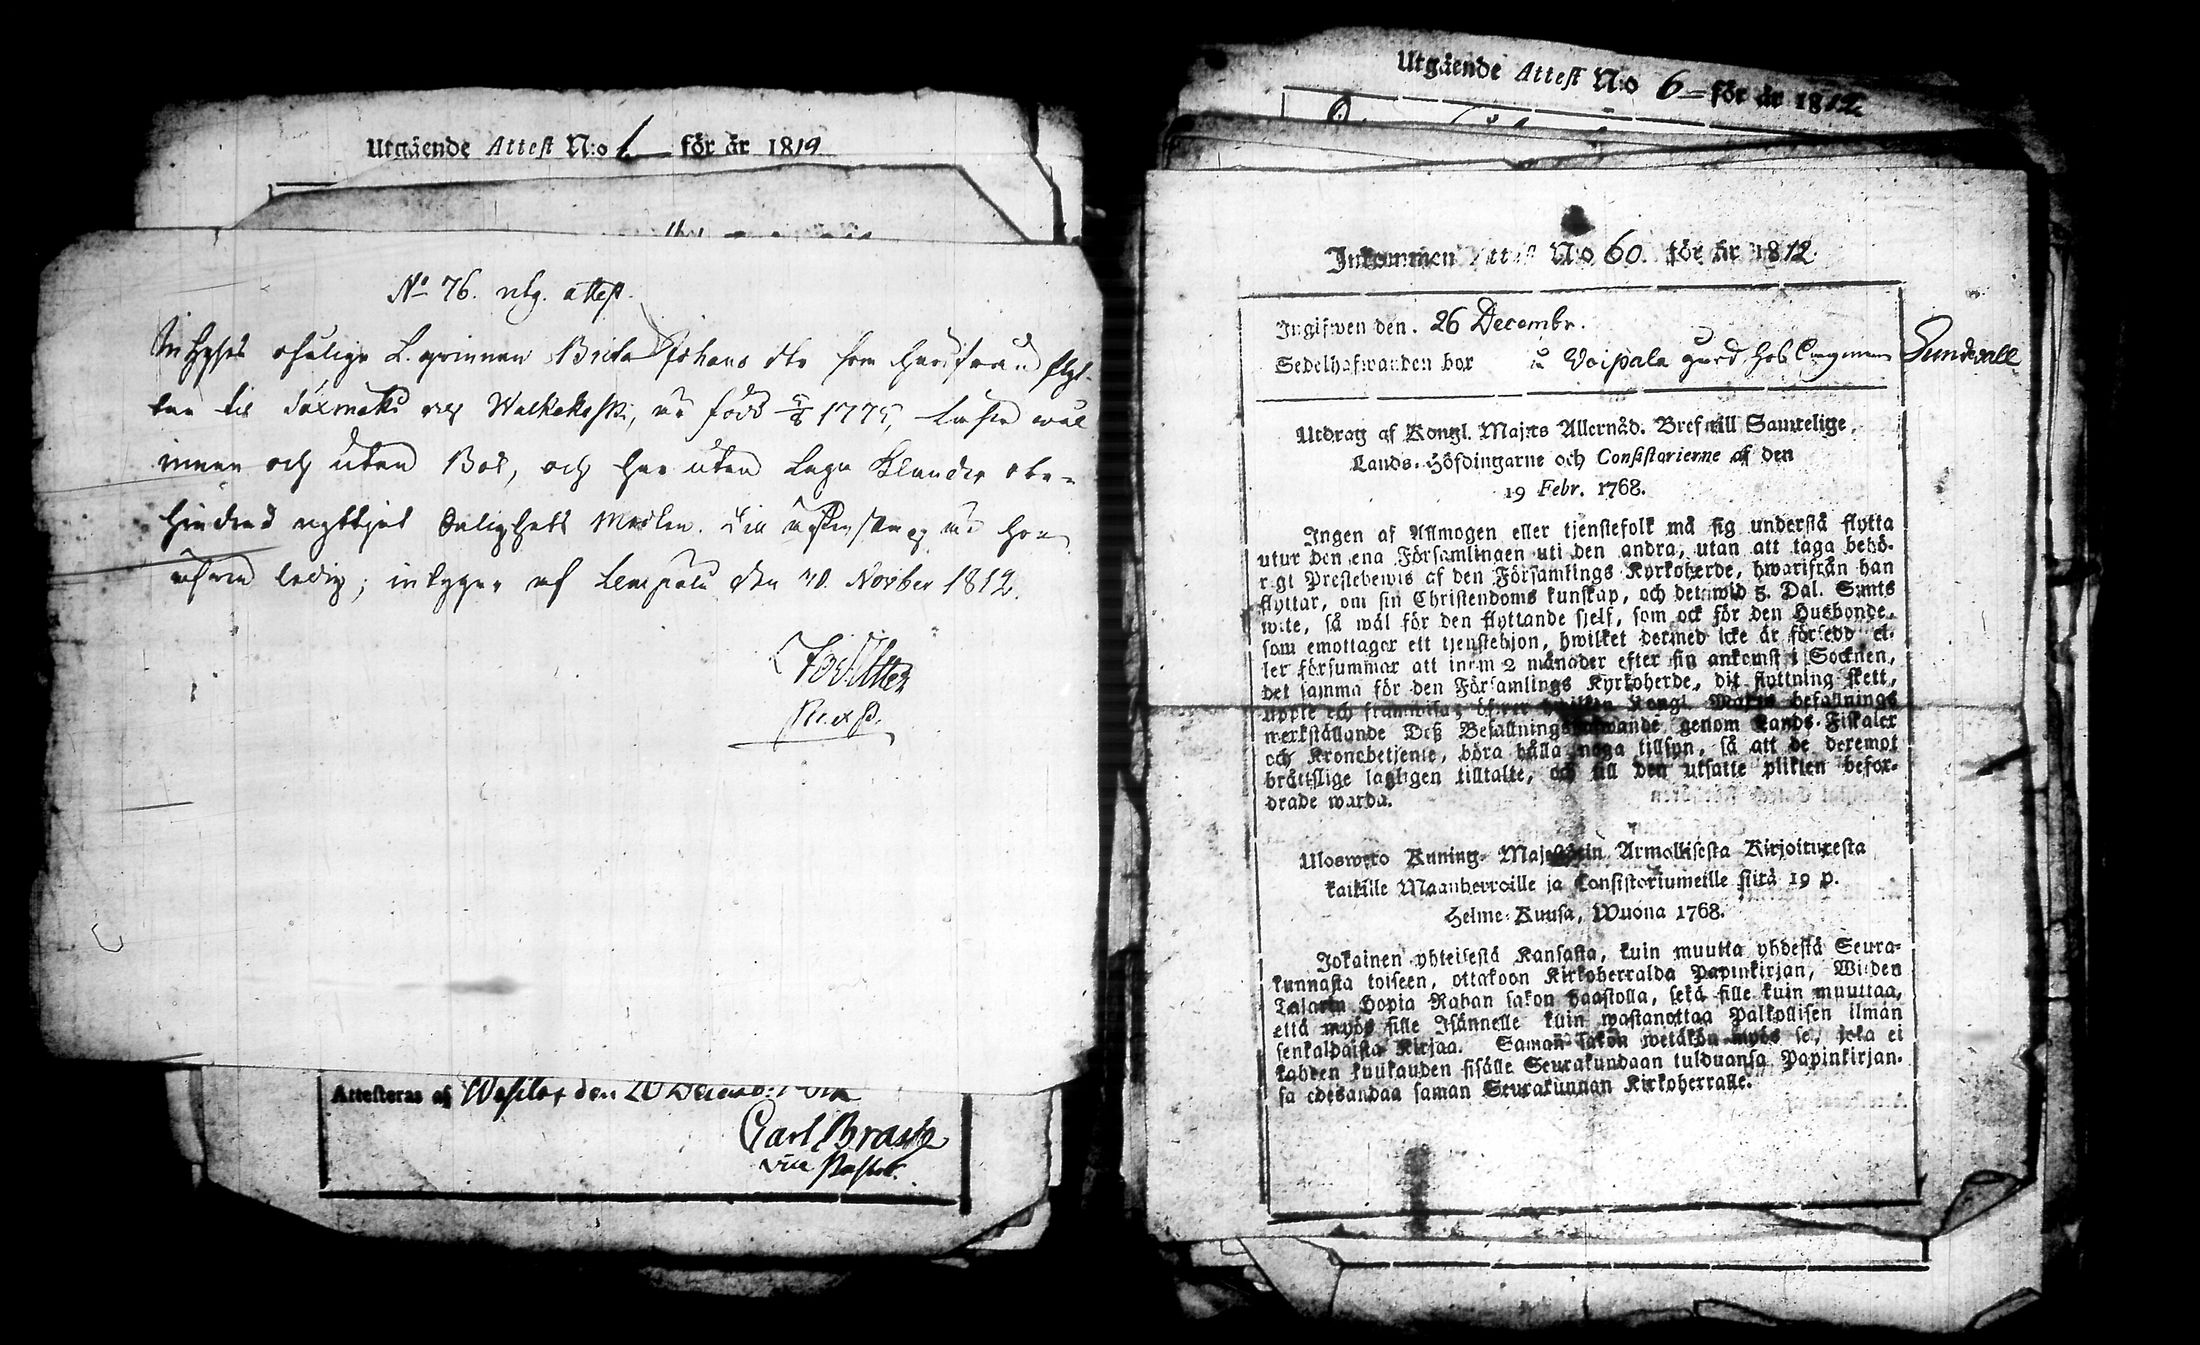 Utgående Attest N:o 1 för år 1819
No 76. utg. attest.
Inhyses Brita Johans dtr som härifrån flyt-
tar til Walkeakoski, är född 1775, läser wäl
innan och utan Bok, och har utan Laga Klander obe-
hindrad nyttjat Salighets Medlen. Til ägtenskap är hon
ledig; intygar af Lempälä den 20. Novber 1812.
Attesteras af Wesilax den 20 Decemb: 1812
Carl Brash
vice Pastor.
Utgående Attest N:o 6 för år 1812
Inkommen Attest N:o 60. för år 1812
Ingifwen den. 26 Decembr.
Sedelhafwanden bor på Woipala gård hos Sundvall
Utdrag af Kongl. Maj:ts Allernåd. Bref till Samtelige
Lands-Höfdingarne och Consistorierne af den
19 Febr. 1768.
Ingen af Allmogen eller tjenstefolk må sig understå flytta
utur den ena Församlingen uti den andra, utan att taga behö-
rigt Prestebewis af den Församlings Kyrkoherde, hwarifrån han
flyttar, om sin Christendoms kunskap, och det wid 5. Dal. S:mts
wite, så wäl för den flyttande sjelf, som ock för den Husbonde,
som emottager ett tjenstehjon, hwilket dermed icke är försedd el-
ler försummar att inom 2 månader efter sin ankomst i Socknen,
det samma för den Församlings Kyrkoherde, dit flyttning skett,
uppte och framwisa; öfwer hwilken Kongl. Maj:ts befallnings
werkställande Deß Befallningshafwande genom Lands-Fiskaler
och Kronobetjente, böra hålla noga tillsyn, så att de deremot
bråttslige lagligen tilltalte, och till den utsatte plikten befor-
drade warda.
Uloswero Kuning: Majestetin Armollisesta Kirjoituxesta
kaikille Maanherroille ja Consistoriumeille siitä 19 p.
Helme-Kuusa, Wuona 1768.
Jokainen yhteisestä Kansasta, kuin muutta yhdestä Seura-
kunnasta toiseen, ottakoon Kirkoherralda Papinkirjan, Wiiden
Talarin Hopia Rahan sakon haastolla, sekä sille kuin muuttaa,
että myös sille Isännelle kuin wastanottaa Palkollisen ilman
senkaldaista Kirjaa. Saman sakon wetäkön myös se, joka ei
kahden kuukauden sisälle Seurakundaan tulduansa Papinkirjan-
sa edesandaa saman Seurakunnan Kirkoherralle.